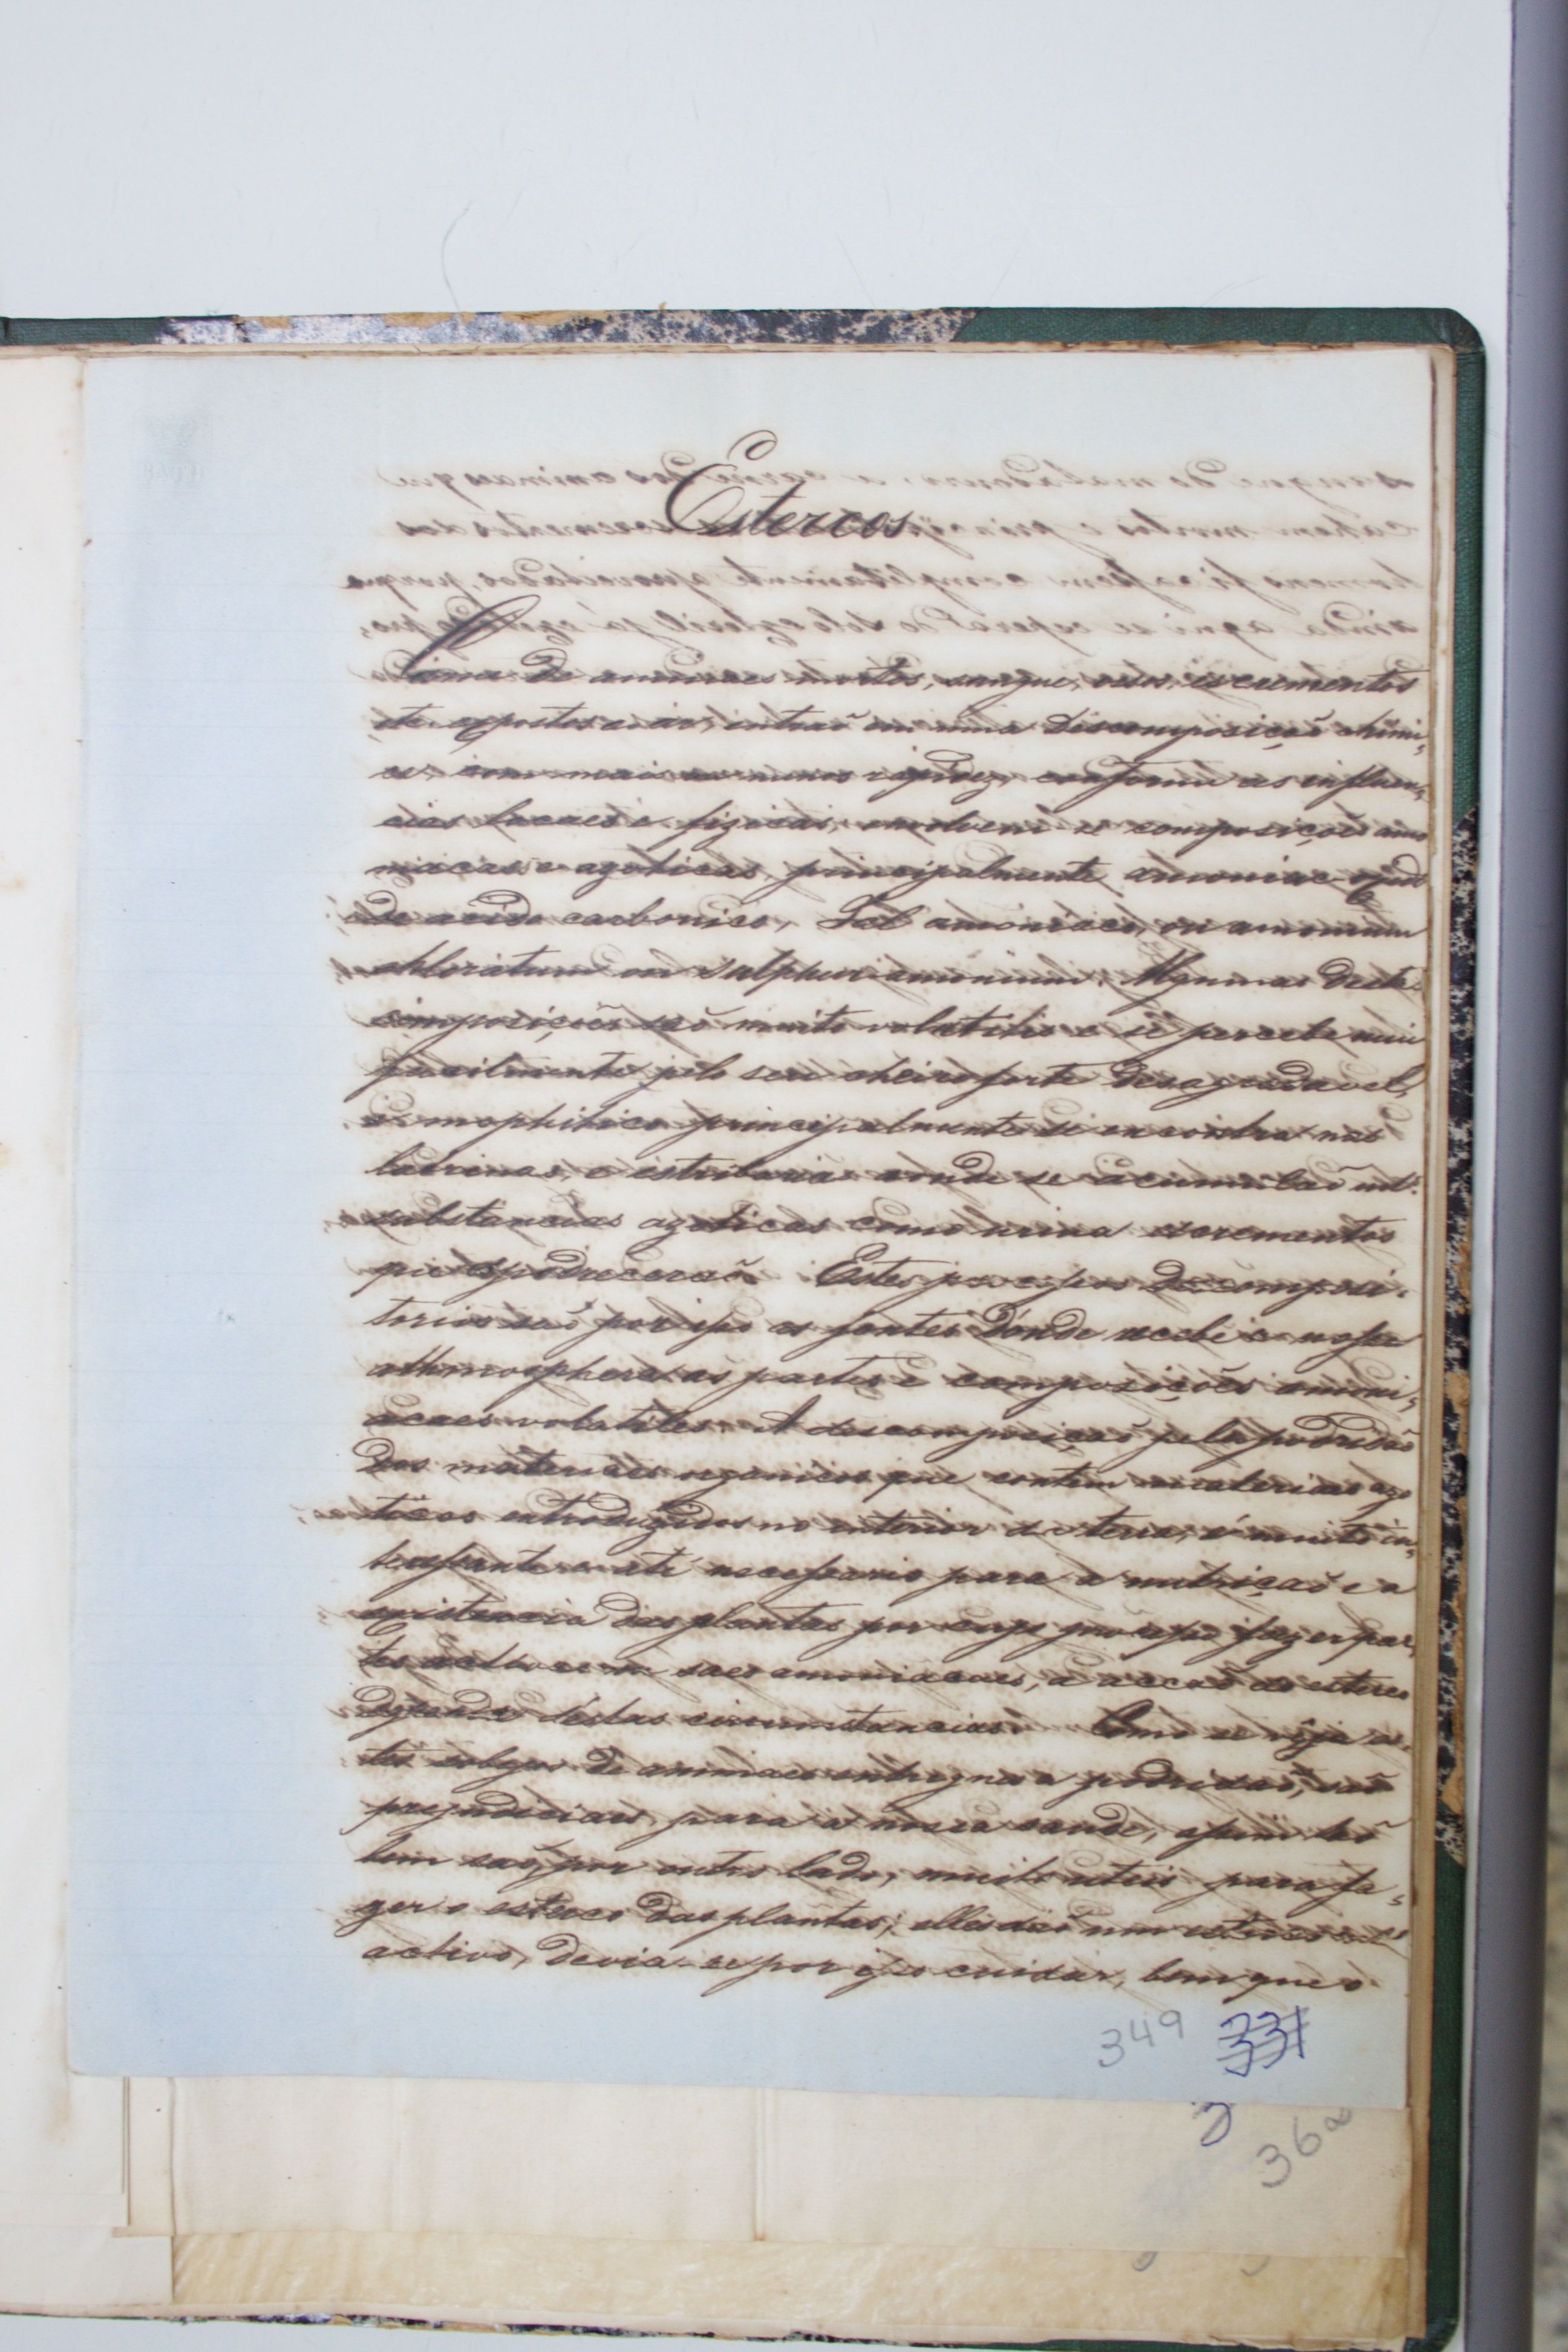 Estercos
de animaes mortos, sangue, ossos, iscrementos
expostos a ar, intraõ em uma discomposiçaõ chimi,
ca com mais ou menos rapidez, conforme as influen,
cias locaes e fizicas, se composições amo
niacas e azoticas, principalmente amoniac
de acido carbonico, Sal amoniaco, ou amonium
chloratum ou sulphur amonium. Algumas deste
composiçoes saõ muito volatiles e se percebe mui
facilmente pelo seu cheiro forte desagradavel,
e mephitico principalmente se encontra nas
latrinas, e estribaria aonde se acumulaõ
substancias azoticas como urina escrementos
que apodreceraõ. Estes processos decomposi,
torios saõ por isso as fontes d'onde recebe a nossa
athmosphera as partes e composições amoni,
acaes volatiles. A descomposiçaõ pela podridaõ
dos materiaes organicos que contem materias azo
ticas entroduzidos no interior da terra, é muito in,
teressante e até necessario para a nutriçaõ e a
existencia das plantas por cujo processo fazer par,
tes saes amoniacaes, a accaõ do esterco
destas circumstancias. Como se
tes de animaes entregues a podridaõ, saõ
prejudiciaes para a nossa saude, assim taõ
bem saõ, por outro lado, muito uteis para fa,
zer o esterco das plantas; elles daõ um esterco
activo, devia-se por isso cuidar, bem que o
349 331
3
36